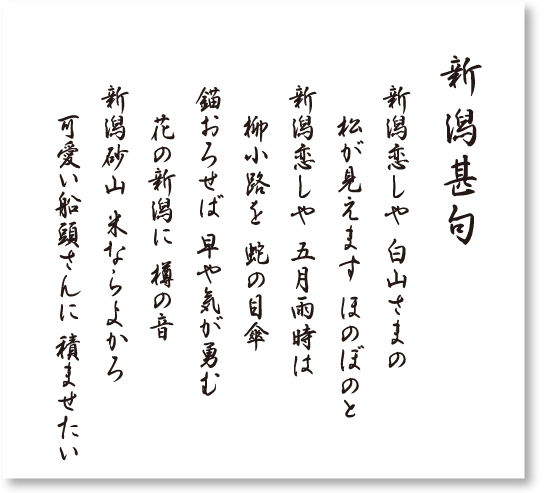 新潟甚句
新潟恋しや 白山さまの
松が見えます ほのぼのと
新潟恋しや 五月雨時は
柳小路を 蛇の目傘
錨おろせば 早や気が勇む
花の新潟に 樽の音
新潟砂山 米ならよかろ
可愛い船頭さんに 積ませたい